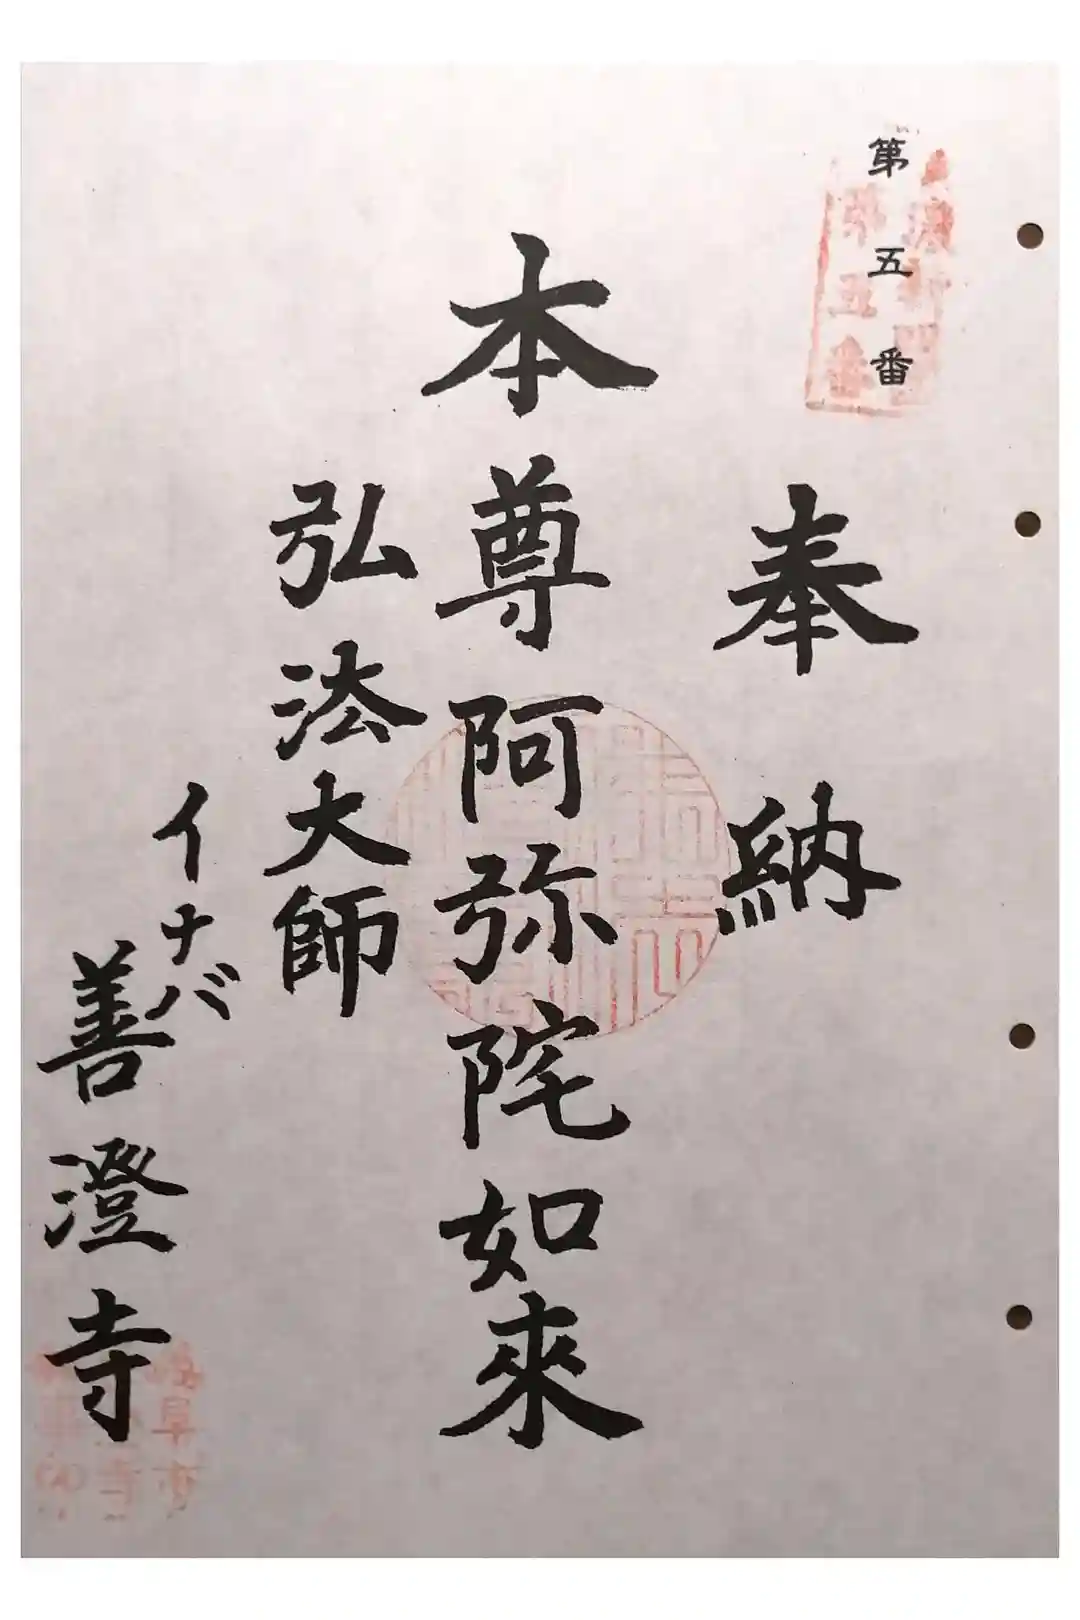 第五番
第五番
奉納
本尊阿弥陀如來
弘法大師
イナバ
善澄寺